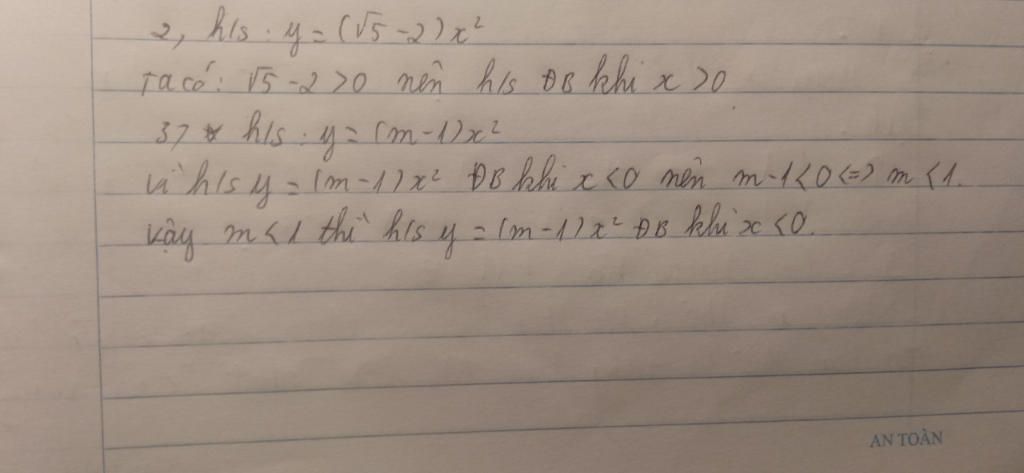 2, h/s : y = (√5 - 2) x²
Ta có: √5 - 2 > 0 nên h/s ĐB khi x > 0
3, h/s : y = (m - 1) x²
Vì h/s y = (m - 1) x² ĐB khi x < 0 nên m - 1 < 0 <=> m < 1.
Vậy m < 1 thì h/s y = (m - 1) x² ĐB khi x < 0.
AN TOÀN